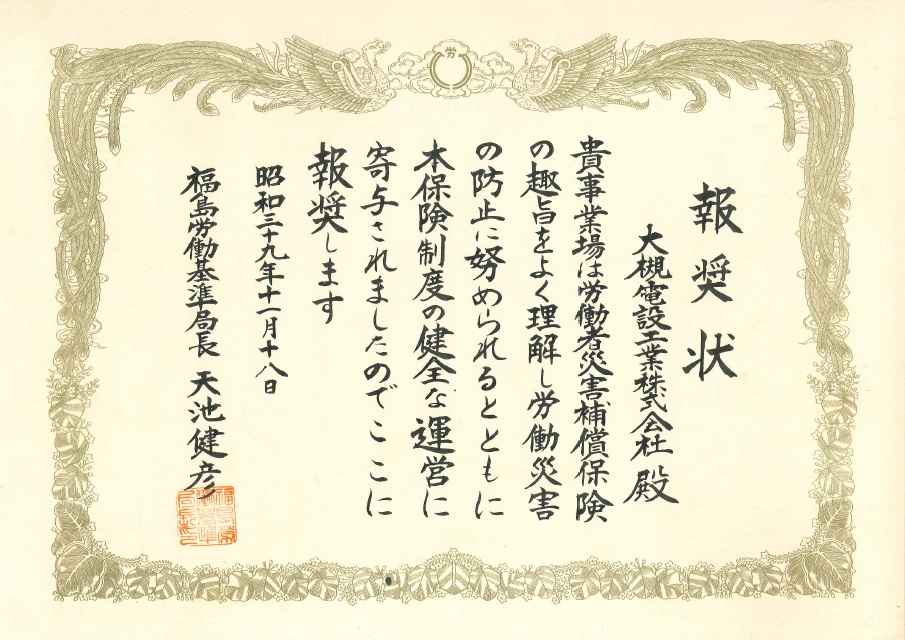 労
報奨状
大槻電設工業株式会社 殿
貴事業場は労働者災害補償保険
の趣旨をよく理解し労働災害
の防止に努められるとともに
本保険制度の健全な運営に
寄与されましたのでここに
報奨します
昭和三十九年十一月十八日
福島労働基準局長 天池健彦